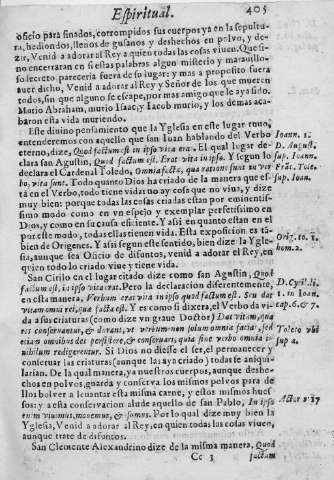 Espiritual. 405
oficio para finados, corrompidos sus cuerpos ya en la sepultu-
ra, hediondos, llenos de gusanos y deshechos en polvo, y de-
zir, Venid a adorar al Rey a quien todas las cosas viuen. Que si-
no encerraran en si estas palabras algun misterio y marauillo-
so secreto pareceria fuera de su lugar: y mas a proposito fuera
auer dicho, Venid a adorar al Rey y Señor de los que mueren
todos, sin que alguno se escape, por mas amigo que le aya sido.
Murio Abraham, murio Isaac, y Iacob murio, y los demas aca-
baron esta vida muriendo.
Este diuino pensamiento que la Yglesia en este lugar tuuo,
entenderemos con aquello que san Iuan hablando del Verbo
eterno, dize, Quod factum est in ipso vita erat. El qual lugar de-
clara san Agustin, Quod factum est. Erat vita in ipso. Y segun lo
declara el Cardenal Toledo, Omnia facta, qua ratione sunt in ver
bo, vita sunt. Todo quanto Dios ha criado de la manera que es-
tà en el Verbo, todo tiene vida: no ay cosa que no viua, y dize
muy bien: porque todas las cosas criadas estan por eminentis-
simo modo como en vn espejo y exemplar perfectissimo en
Dios, y como en su causa eficiente. Y assi en quanto estan en el
por este modo, todas ellas tienen vida. Esta exposicion es tā-
bien de Origenes. Y assi segun este sentido, bien dize la Ygle-
sia, aunque sea Oficio de difuntos, venid a adorar el Rey, en
quien todo lo criado viue y tiene vida.
San Cirilo en el lugar citado dize como san Agustin, Quod
factum est, in ipso vita erat. Pero la declaracion diferentemente,
o en esta manera, Verbum erat vita in ipso quod factum est. Seu dat
vitam omni rei, quæ facta est. Y es como si dixera, el Verbo da vi-
da a sus criaturas (como dize vn graue Doctor) Dat vitam, qua
res conseruantur, & durant, vt verbum non solum omnia faciat, sed
etiam omnibus det persistere, & conseruari, quia sine verbo omnia in
nihilum redigerentur. Si Dios no diesse el ser, el permanecer y
conseruar las criaturas (aunque las aya criado) todas se aniqui-
larian. De la qual manera, ya nuestros cuerpos, aunque deshe-
chos en poluos, guarda y conserva los mismos poluos para de
llos boluer a leuantar esta misma carne, y estos mismos hues-
sos: y a esta conseruacion alude aquello de san Pablo, In ipso
enim viuimus, mouemur, & sumus. Por lo qual dize muy bien la
Yglesia, Venid a adorar al Rey, en quien todas las cosas viuen,
aunque trate de difuntos.
San Clemente Alexandrino dize de la misma manera, Quod
Cc 3 factum
Ioann. 1.
D. August.
sup. Ioann.
Frāc. Tole.
sup. Ioan.
Orig. to. 1.
hom. 2.
D. Cyril. li.
1. in Ioan.
cap. 6. & 7.
Toleto vbi
sup a.
Actor. 17